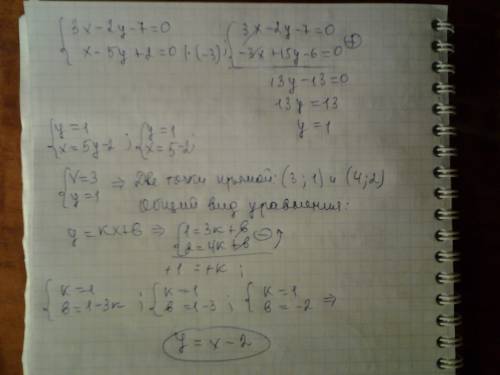 {3x-2y-7=0 {3x-2y-7=0
{x-5y+2=0 |·(-3) ; {-3x+15y-6=0 (+)
13y-13=0
13y=13
y=1
{y=1 ; {y=1
{x=5y-2 {x=5-2 ;
{x=3 ⇒ Две точки прямой: (3;1) и (4;2)
{y=1 Общий вид уравнения:
y=kx+b ⇒ {1=3k+b
{2=4k+b (-)
+1=+k ;
{k=1 ; {k=1 ; {k=1 ⇒
{b=1-3k {b=1-3 {b=-2
y=x-2